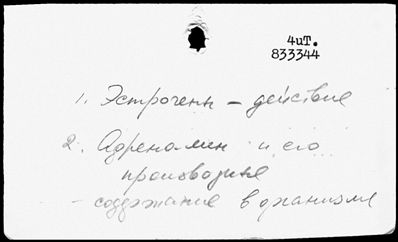 4иТ.
833344
1. Эстрогены – действие
2. Адреналин и его
производные
– содержание в организме